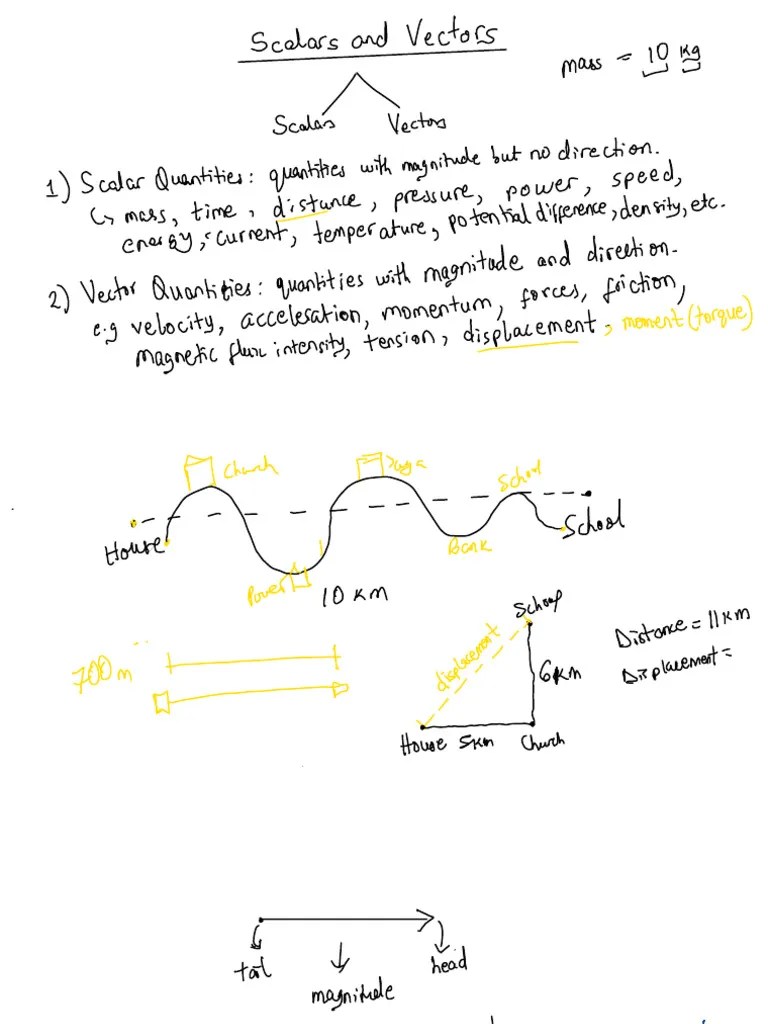 Scalars and Vectors
mass = 10 kg
Scalars Vectors
1) Scalar Quantities: quantities with magnitude but no direction.
↳ mass, time, distance, pressure, power, speed,
energy, current, temperature, potential difference, density, etc.
2) Vector Quantities: quantities with magnitude and direction.
e.g velocity, acceleration, momentum, forces, friction,
magnetic flux intensity, tension, displacement, moment (torque)
Church
School
House
School
Bank
Power
10 KM
700 m
School
Distance = 11KM
displacement
6KM
Displacement =
House 5KM Church
tail
head
magnitude